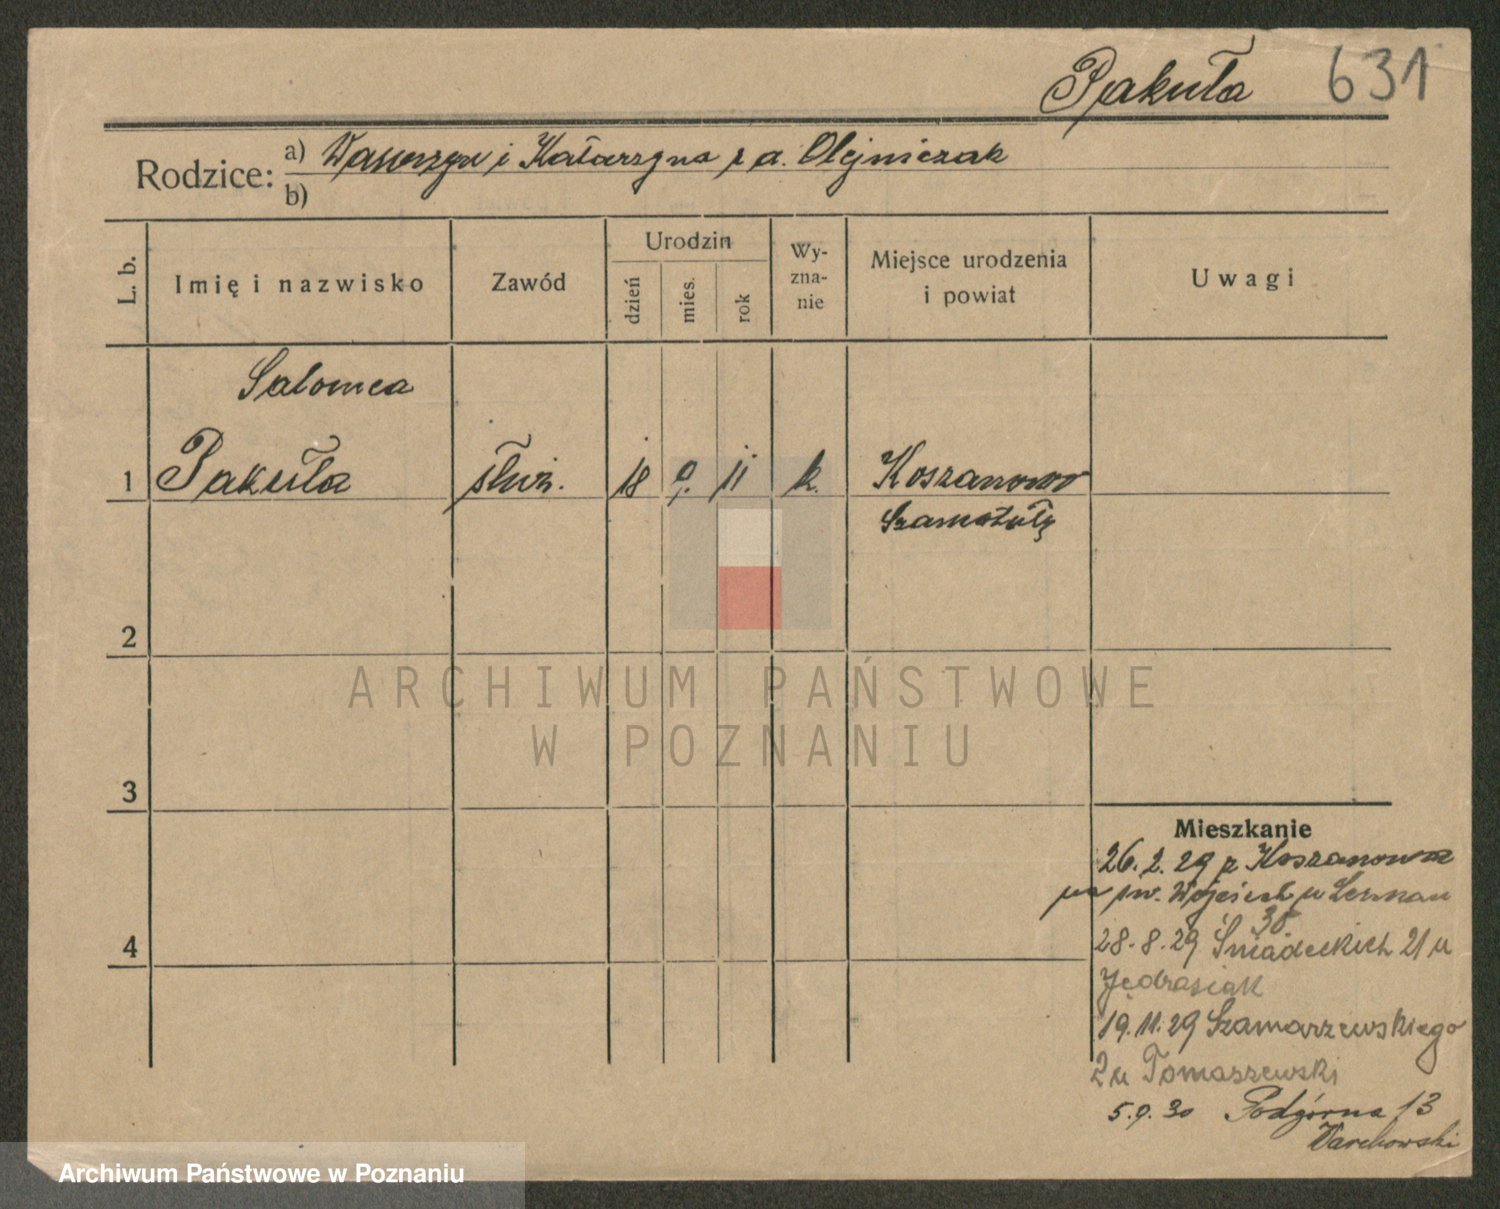 Pakuła 631
Rodzice: a) Wawrzyn i Katarzyna z d. Olejniczak
b)
L. b. Imię i nazwisko Zawód Urodzin dzień mies. rok Wyznanie Miejsce urodzenia i powiat Uwagi
Salomea
1 Pakuła służ. 18 9. 11 k. Koszanowo
Szamotuły
2
3
4
Mieszkanie
26.2.29 z Koszanowa
na św. Wojciech u Lerman
30
28.8.29 Śniadeckich 21 u
Jędrasiak
19.11.29 Szamarzewskiego
2 u Tomaszewski
5.9.30 Podgórna 13
Warchowski
ARCHIWUM PAŃSTWOWE
W POZNANIU
Archiwum Państwowe w Poznaniu